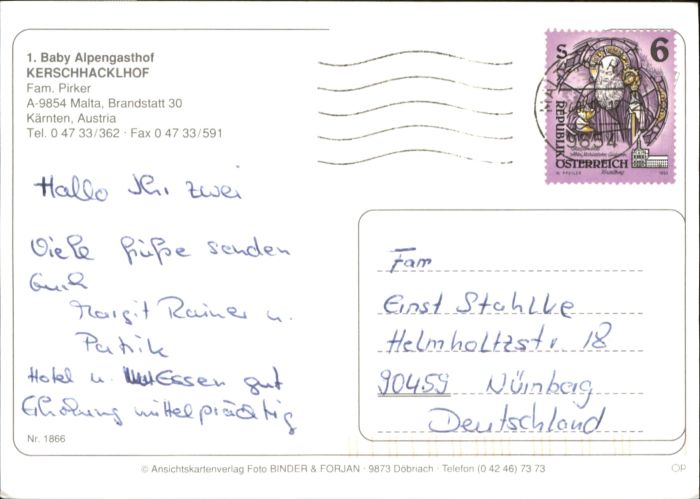 1. Baby Alpengasthof
KERSCHHACKLHOF
Fam. Pirker
A-9854 Malta, Brandstatt 30
Kärnten, Austria
Tel. 0 47 33/362 · Fax 0 47 33/591
S 6
REPUBLIK
ÖSTERREICH
9854
Hallo Ihr zwei
Viele Grüße senden
Euch
Margit Rainer u.
Patrik
Hotel u. Essen gut
Erholung mittelprächtig
Nr. 1866
Fam
Ernst Stahlke
Helmholtzstr. 18
90459 Nürnberg
Deutschland
© Ansichtskartenverlag Foto BINDER & FORJAN · 9873 Döbriach · Telefon (0 42 46) 73 73